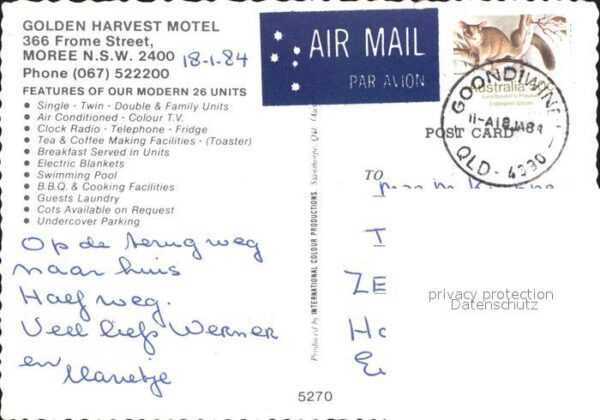 GOLDEN HARVEST MOTEL
366 Frome Street,
MOREE N.S.W. 2400 18-1.84
Phone (067) 522200
FEATURES OF OUR MODERN 26 UNITS
• Single - Twin - Double & Family Units
• Air Conditioned - Colour T.V.
• Clock Radio - Telephone - Fridge
• Tea & Coffee Making Facilities - (Toaster)
• Breakfast Served in Units
• Electric Blankets
• Swimming Pool
• B.B.Q. & Cooking Facilities
• Guests Laundry
• Cots Available on Request
• Undercover Parking
Op de terug weg
naar huis
Half weg.
Veel liefs Werner
en
Produced by INTERNATIONAL COLOUR PRODUCTIONS, Stanthorpe, Qld.
AIR MAIL
PAR AVION
Australia
Endangered Species
GOONDIWINDI
QLD - 4390
POST CARD
TO
ZE
privacy protection
Datenschutz
5270